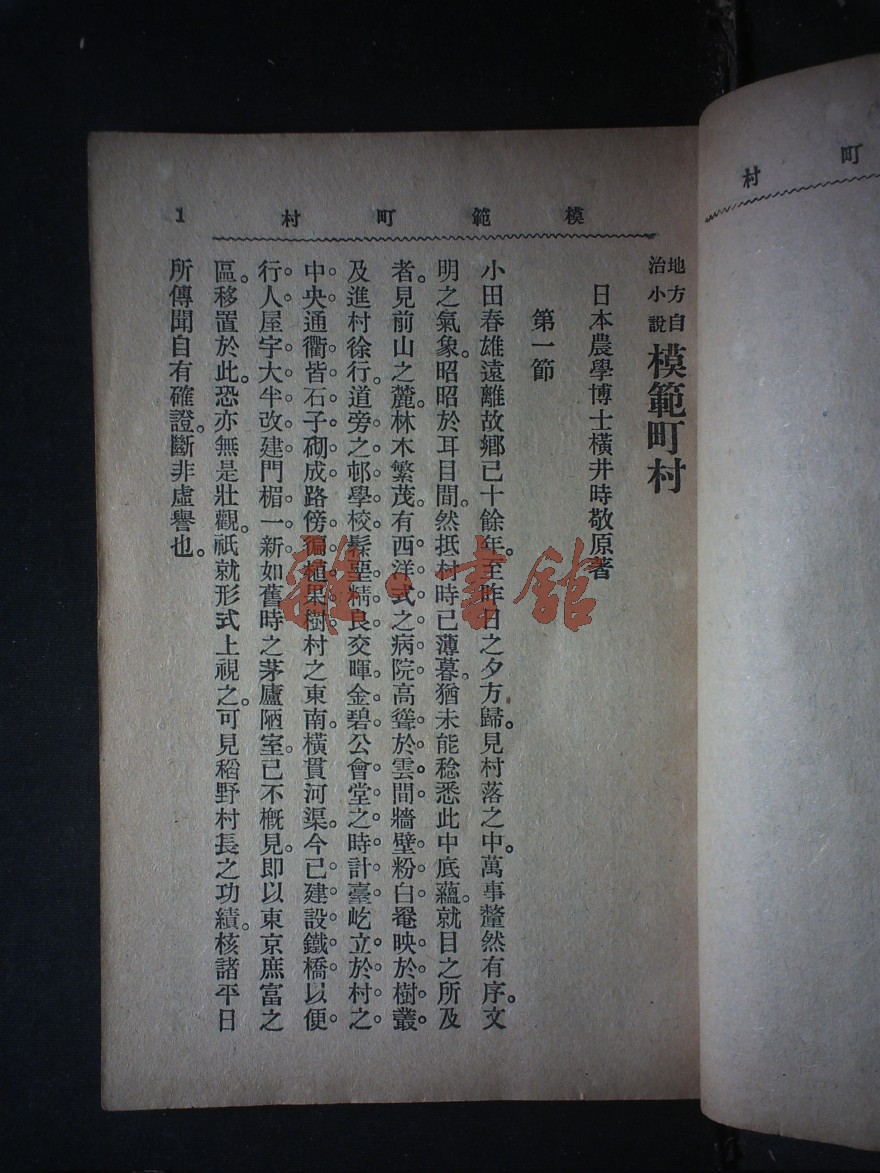 模範町村 1
地方自治小說 模範町村
日本農學博士橫井時敬原著
第一節
小田春雄遠離故鄉已十餘年。至昨日之夕方歸。見村落之中。萬事釐然有序。文
明之氣象。昭昭於耳目間。然抵村時已薄暮。猶未能稔悉此中底蘊。就目之所及
者。見前山之麓。林木繁茂。有西洋式之病院高聳於雲間。牆壁粉白。掩映於樹叢。
及進村徐行。道旁之邨學校。髹堊精良。交暉金碧。公會堂之時計臺。屹立於村之
中央。通衢皆石子砌成。路傍徧植果樹。村之東南。橫貫河渠。今已建設鐵橋。以便
行人。屋宇大半改建。門楣一新。如舊時之茅廬陋室。已不概見。即以東京庶富之
區。移置於此。恐亦無是壯觀。祇就形式上視之。可見稻野村長之功績。核諸平日
所傳聞。自有確證。斷非虛譽也。
村 町
雜·書館